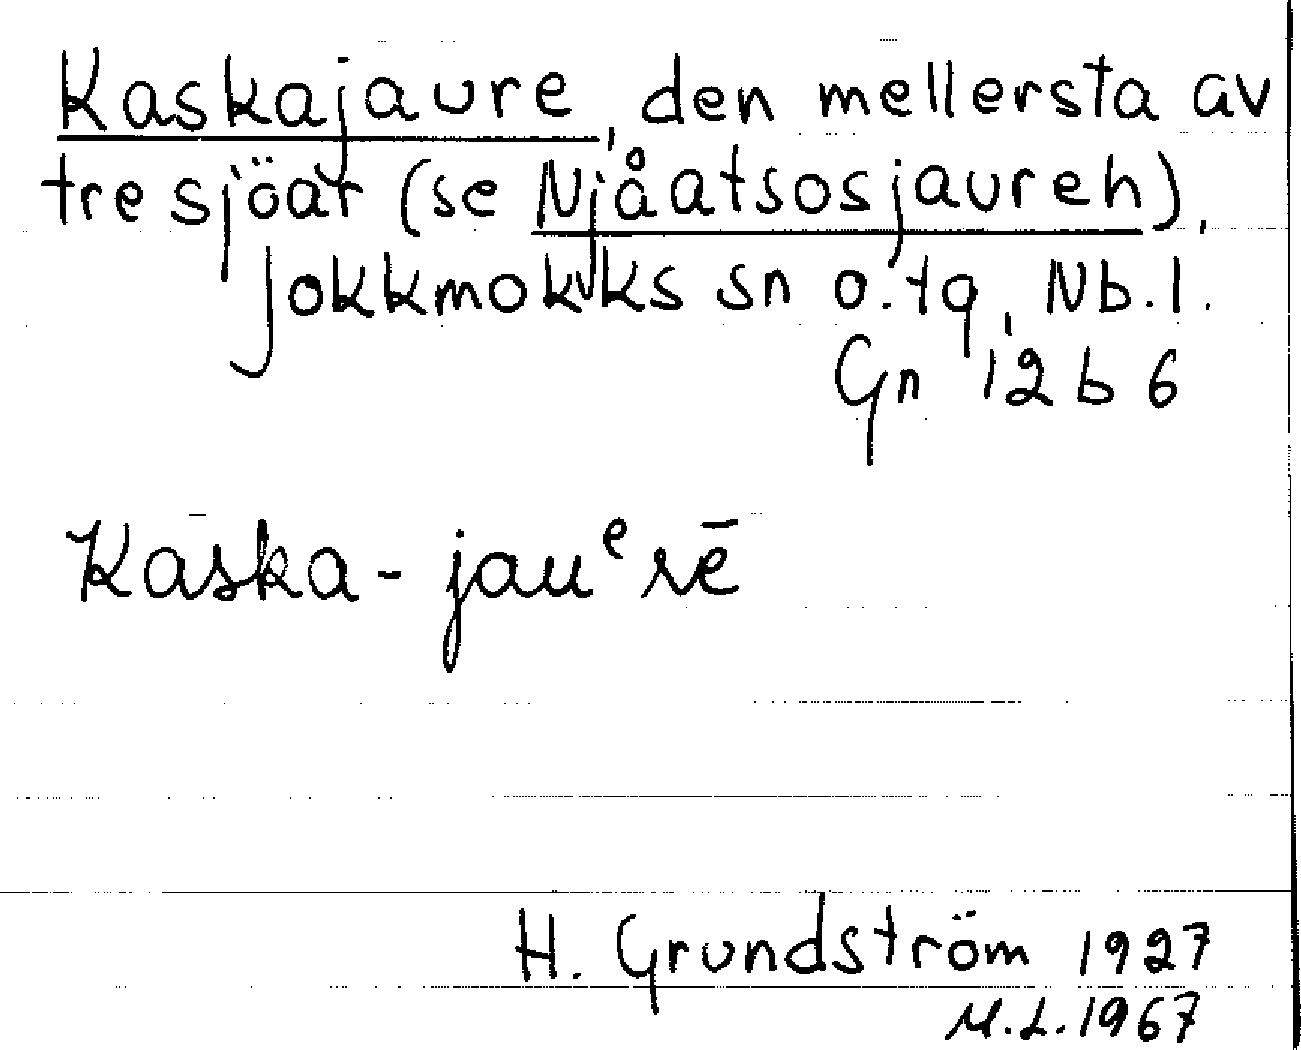 Kaskajaure, den mellersta av
tre sjöar (se Njåatsosjaureh),
Jokkmokks sn o. tg, Nb. l.
Gn 12 b 6
Kaska-jauᵉrē
H. Grundström 1927
M.L. 1967